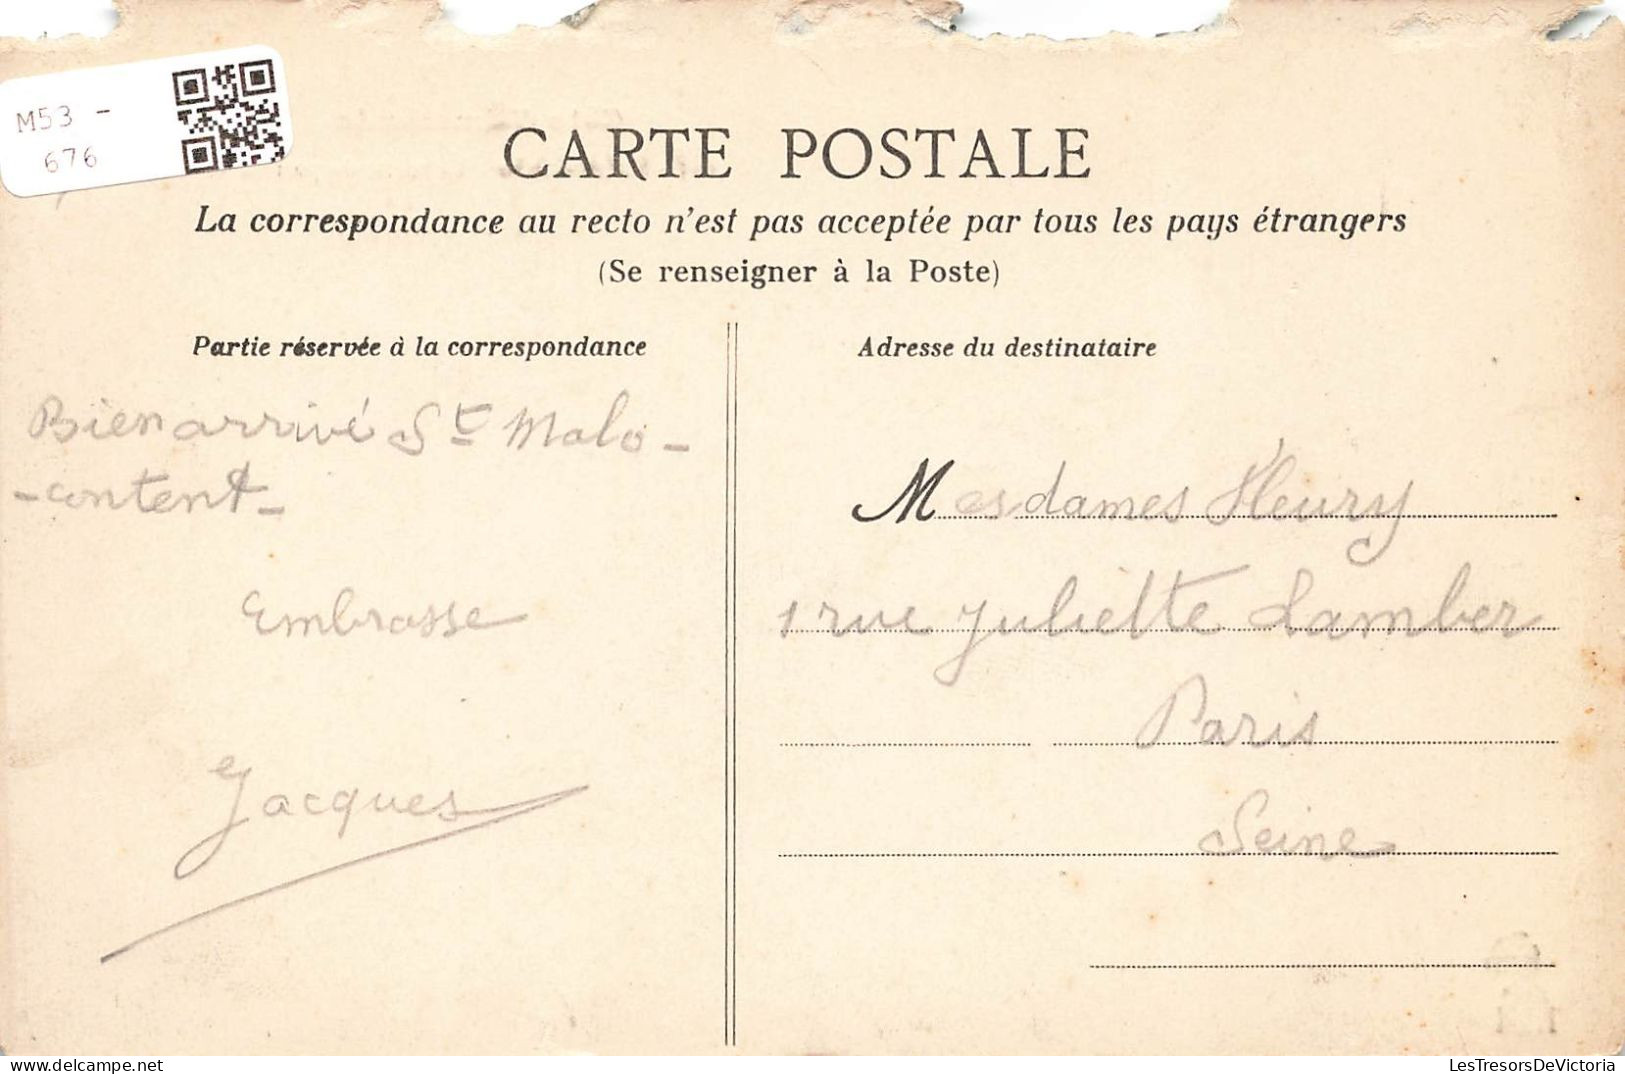 M53 -
676
CARTE POSTALE
La correspondance au recto n'est pas acceptée par tous les pays étrangers
(Se renseigner à la Poste)
Partie réservée à la correspondance
Bien arrivé St Malo -
- content -
Embrasse
Jacques
Adresse du destinataire
Mesdames Fleury
1 rue Juliette Lamber
Paris
Seine
LesTresorsDeVictoria